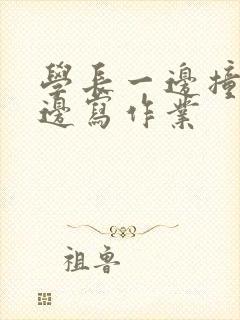 學長一邊撞
邊寫作業
祖魯